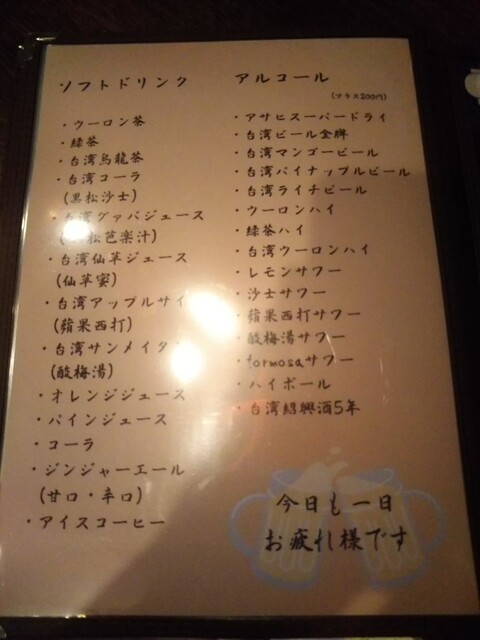 ソフトドリンク
・ウーロン茶
・緑茶
・台湾烏龍茶
・台湾コーラ
(黒松沙士)
・台湾グァバジュース
松芭楽汁)
・台湾仙草ジュース
(仙草蜜)
・台湾アップルサイ
(蘋果西打)
・台湾サンメイタン
(酸梅湯)
・オレンジジュース
・パインジュース
・コーラ
・ジンジャーエール
(甘口・辛口)
・アイスコーヒー
アルコール
(プラス200円)
・アサヒスーパードライ
・台湾ビール金牌
・台湾マンゴービール
・台湾パイナップルビール
・台湾ライチビール
・ウーロンハイ
・緑茶ハイ
・台湾ウーロンハイ
・レモンサワー
・沙士サワー
・蘋果西打サワー
・酸梅湯サワー
・formosaサワー
・ハイボール
・台湾紹興酒5年
今日も一日
お疲れ様です